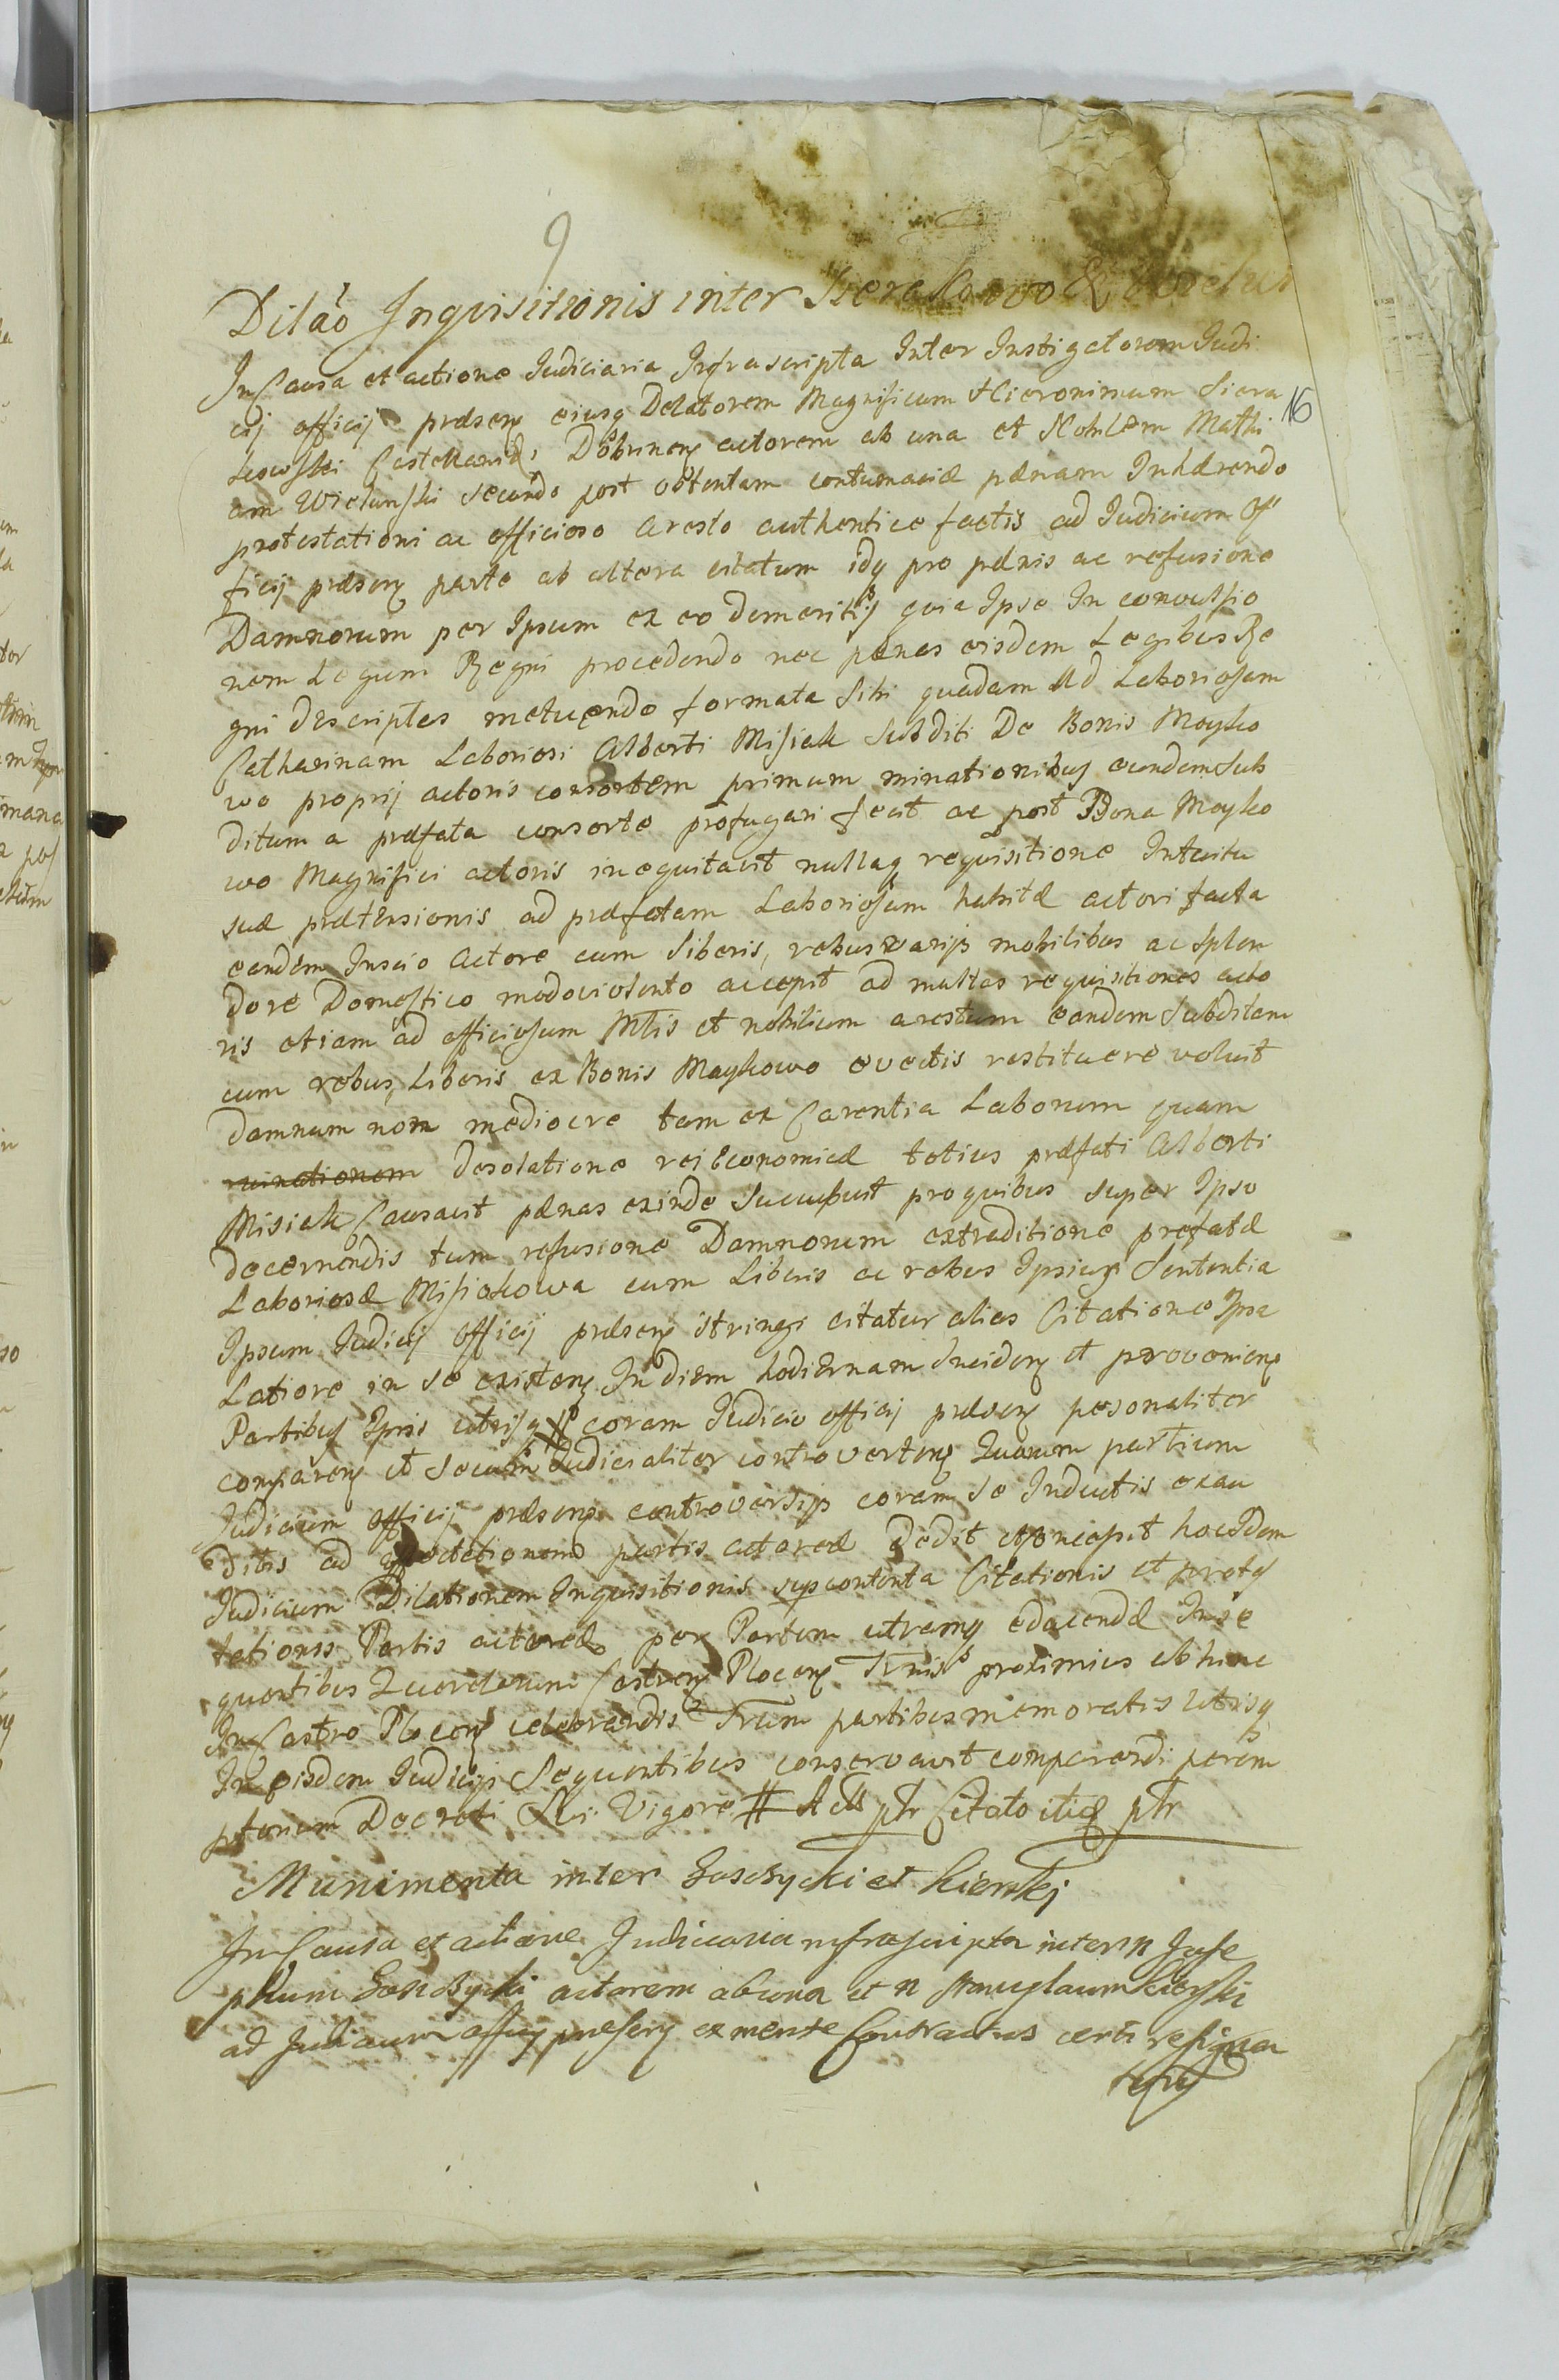 9
Dilaõ Inquisitionis inter Siera
16
In Causa et actione Judiciaria Infrascripta Inter Instigatorem Judi
cij officij præsenꝭ eiusq Delatorem Magnificum Hieronimum Siera
kowski Castellanid. Dobrinenꝭ actorem ab una et Nobilem Mathi
am Wielunski secundo post obtentam contumaciæ pænam Inhærendo
protestationi ac officioso aresto authentice factis ad Judicium Of
ficij præsenꝭ parte ab altera citatum idq pro pænis ac refusione
Damnorum per Ipsum ex eo demeritis quia Ipse In convulsio
nem Legum Regni procedendo nec pænas eisdem Legibus Re
gni descriptas metuendo formata sibi quadam Ad Laboriosam
Catharinam Laboriosi Alberti Misiak Subditi De Bonis Mayko
wo proprij actoris consortem primum minationibus eundem Sub
ditum a præfata consorte profugari fecit ac post Bona Mayko
wo Magnifici actoris inequitavit nullaq requisitione Intuitu
suæ prætensionis ad præfatam Laboriosam habitæ actori facta
eandem Inscio Actore cum liberis, rebus varijs mobilibus ac splen
dore Domestico modo violento accepit ad multas requisitiones acto
ris etiam ad officiosum Mtis et nobilium arestum eandem Subditam
cum rebus, Liberis ex Bonis Maykowo evectis restituere voluit
damnum non mediocre tam ex Carentia Laborum quam
ruinationem desolatione rei Economicæ totius præfati Alberti
Misiak Causavit pænas exinde Succubuit pro quibus super Ipso
decernendis tum refusione Damnorum extraditione prefatæ
Laboriosæ Misiakowa cum Liberis ac rebus Ipsius Sententia
Ipsum Judicij Officij præsenꝭ stringi citatur alias Citatione Ipsa
Latiore in se existenꝭ In diem hodiernam Incidenꝭ et provenienꝭ
Partibus Ipsis utrisq coram Judicio officij præsenꝭ pesonaliter
comparenꝭ et secum Judicialiter controvertenꝭ Quarum partium
Judicium officij præsenꝭ controversijs coram se Inductis exau
ditis ad partis actoreæ dedit et hoc Idem
Judicium Dilationem Inquisitionis sup contenta Citationis et protes
tationis Partis actoreæ per Partem utramq educendæ In se
quentibus Querelarum Castrenꝭ Plocenꝭ Trnis proximius ab hinc
In Castro Plocenꝭ celebrandis Trum partibus memoratis utrisq
In eisdem Judicijs Sequentibus conservavit comparendi perem
ptorium Decreti Sui Vigore # Act ptr Citato itidꝭ ptr
Munimenta inter et Kierski
In Causa et actione Judiciaria infrascripta inter n Jose
phum actorem ab una et n Stanislaum Kierski
ad Judicium officij præsenꝭ ex mente Contractus certi resigna